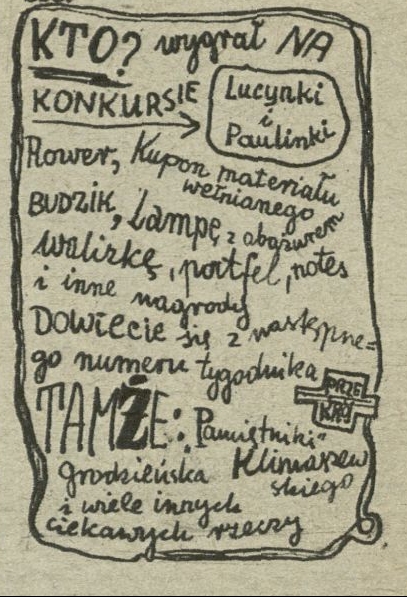 KTO? wygrał NA
KONKURSIE
Lucynki
i
Paulinki
Rower, Kupon materiału
wełnianego
BUDZIK, Lampę z abażurem
walizkę, portfel, notes
i inne nagrody
DOWIECIE się z następne=
go numeru tygodnika
PRZE
KRÓJ
TAMŻE: "Pamiętniki"
grodzieńska Klimaszew
skiego
i wiele innych
ciekawych rzeczy